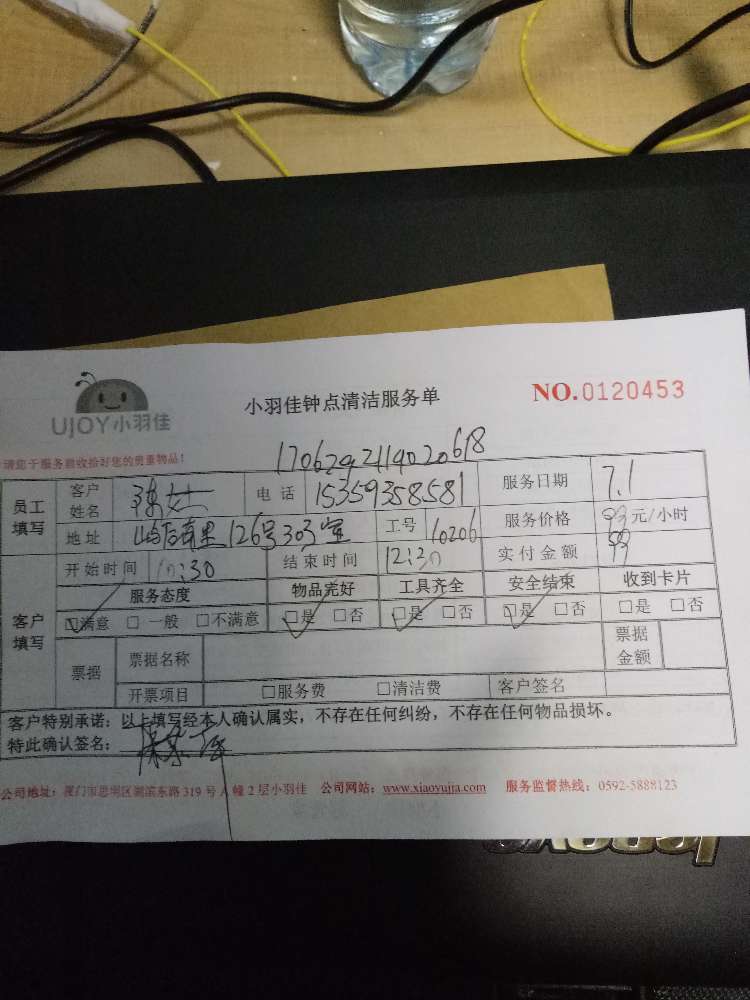 UJOY小羽佳
小羽佳钟点清洁服务单
NO.0120453
请您于服务前收拾好您的贵重物品！
1706292119020618
员工填写 客户姓名 电话 15359358581 服务日期 7.1
地址 后南里126号303室 工号 10206 服务价格 元/小时
开始时间 10:30 结束时间 12:30 实付金额 99
客户填写 服务态度 物品完好 工具齐全 安全结束 收到卡片
☑满意 □一般 □不满意 ☑是 □否 ☑是 □否 ☑是 □否 □是 □否
票据 票据名称 票据金额
开票项目 □服务费 □清洁费 客户签名
客户特别承诺：以上填写经本人确认属实，不存在任何纠纷，不存在任何物品损坏。
特此确认签名：
公司地址：厦门市思明区湖滨东路319号A幢2层小羽佳 公司网站：www.xiaoyujia.com 服务监督热线：0592-5888123